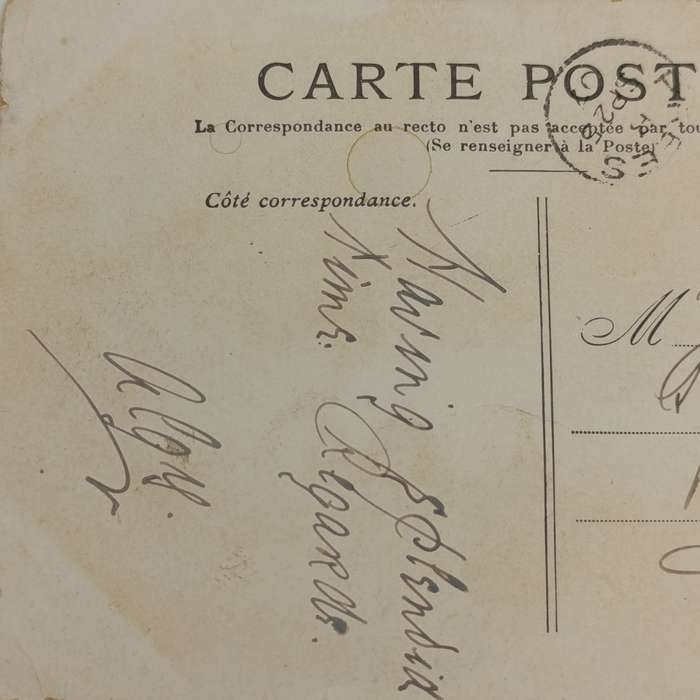 CARTE POST
La Correspondance au recto n'est pas acceptée par tou
(Se renseigner à la Poste)
Côté correspondance.
Having Splendid
Time.
Regards.
Algy.
M